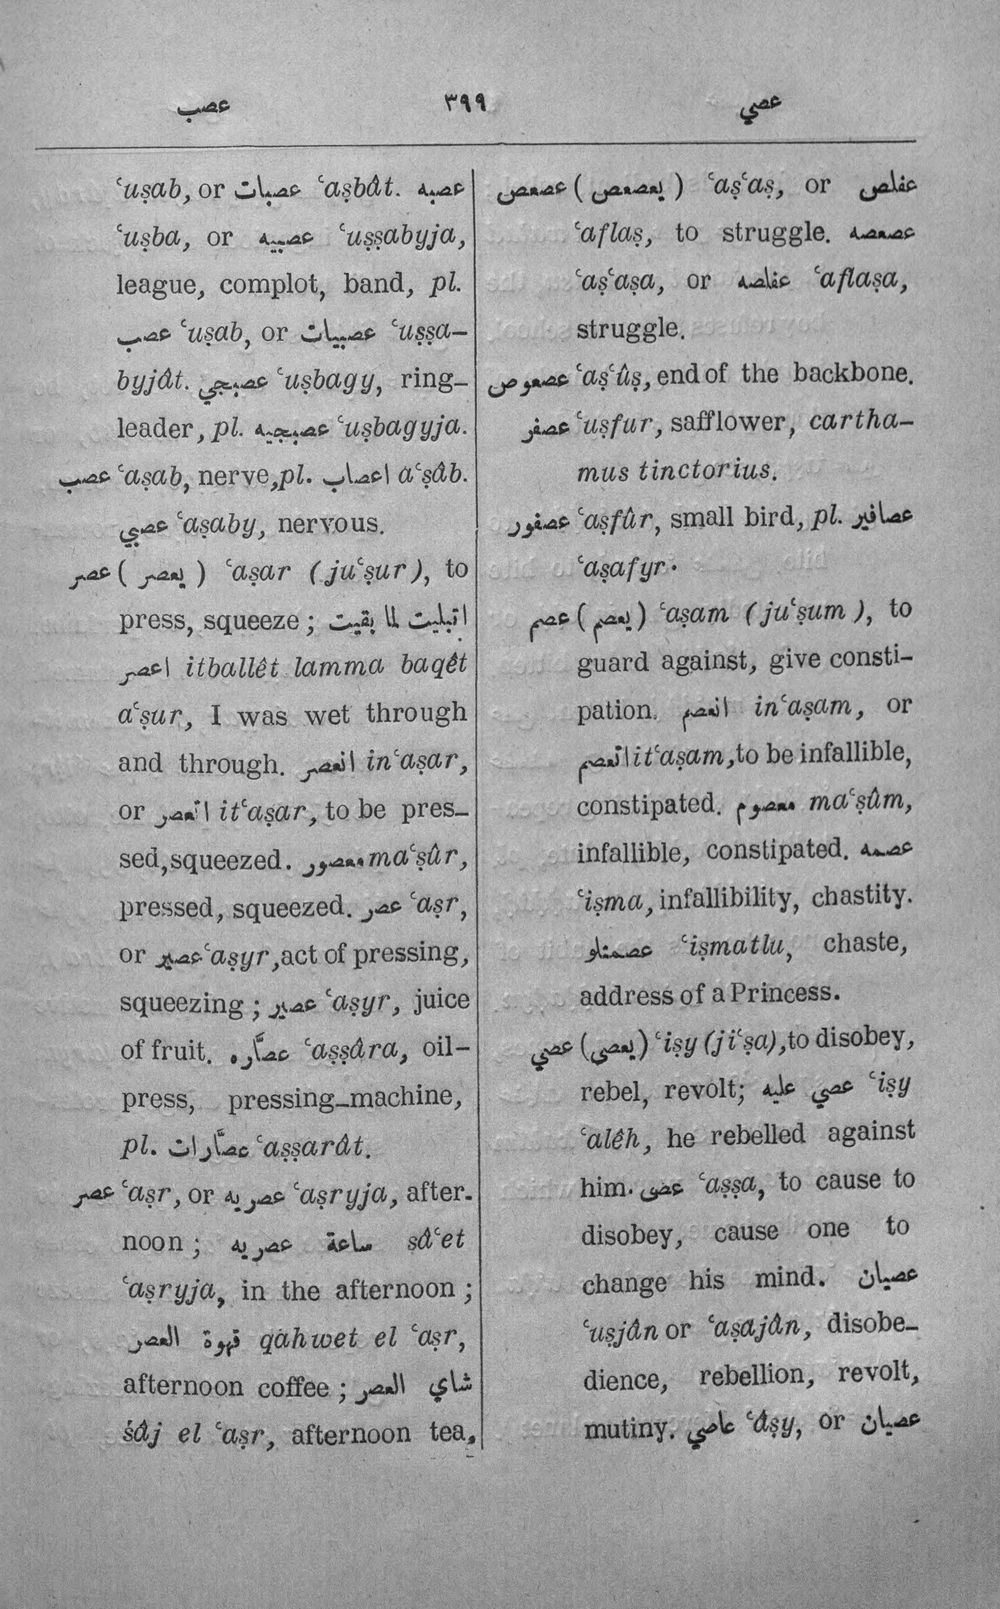 عصب ٣٩٩ عصي
ʿuṣab, or عصبات ʿaṣbât. عصبه
ʿuṣba, or عصبيه ʿuṣṣabyja,
league, complot, band, pl.
عصب ʿuṣab, or عصبيات ʿuṣṣa-
byjât. عصبجي ʿuṣbagy, ring-
leader, pl. عصبجيه ʿuṣbagyja.
عصب ʿaṣab, nerve, pl. اعصاب aʿṣâb.
عصبي ʿaṣaby, nervous.
عصر (يعصر) ʿaṣar (juʿṣur), to
press, squeeze; اتبليت لما بقيت
اعصر itballêt lamma baqêt
aʿṣur, I was wet through
and through. انعصر inʿaṣar,
or اتعصر itʿaṣar, to be pres-
sed, squeezed. معصور maʿṣûr,
pressed, squeezed. عصر ʿaṣr,
or عصير ʿaṣyr, act of pressing,
squeezing; عصير ʿaṣyr, juice
of fruit. عصّاره ʿaṣṣâra, oil-
press, pressing-machine,
pl. عصّارات ʿaṣṣarât.
عصر ʿaṣr, or عصريه ʿaṣryja, after-
noon; ساعة عصريه sâʿet
ʿaṣryja, in the afternoon;
قهوة العصر qahwet el ʿaṣr,
afternoon coffee; شاي العصر
śâj el ʿaṣr, afternoon tea.
عصعص (يعصعص) ʿaṣʿaṣ, or عفلص
ʿaflaṣ, to struggle. عصعصه
ʿaṣʿaṣa, or عفلصه ʿaflaṣa,
struggle.
عصعوص ʿaṣʿûṣ, end of the backbone.
عصفر ʿuṣfur, safflower, cartha-
mus tinctorius.
عصفور ʿaṣfûr, small bird, pl. عصافير
ʿaṣafyr.
عصم (يعصم) ʿaṣam (juʿṣum), to
guard against, give consti-
pation. انعصم inʿaṣam, or
اتعصم itʿaṣam, to be infallible,
constipated. معصوم maʿṣûm,
infallible, constipated. عصمه
ʿiṣma, infallibility, chastity.
عصمتلو ʿiṣmatlu, chaste,
address of a Princess.
عصي (يعصى) ʿiṣy (jiʿṣa), to disobey,
rebel, revolt; عصي عليه ʿiṣy
ʿalêh, he rebelled against
him. عصّى ʿaṣṣa, to cause to
disobey, cause one to
change his mind. عصيان
ʿuṣjân or ʿaṣajân, disobe-
dience, rebellion, revolt,
mutiny. عاصي ʿâṣy, or عصيان